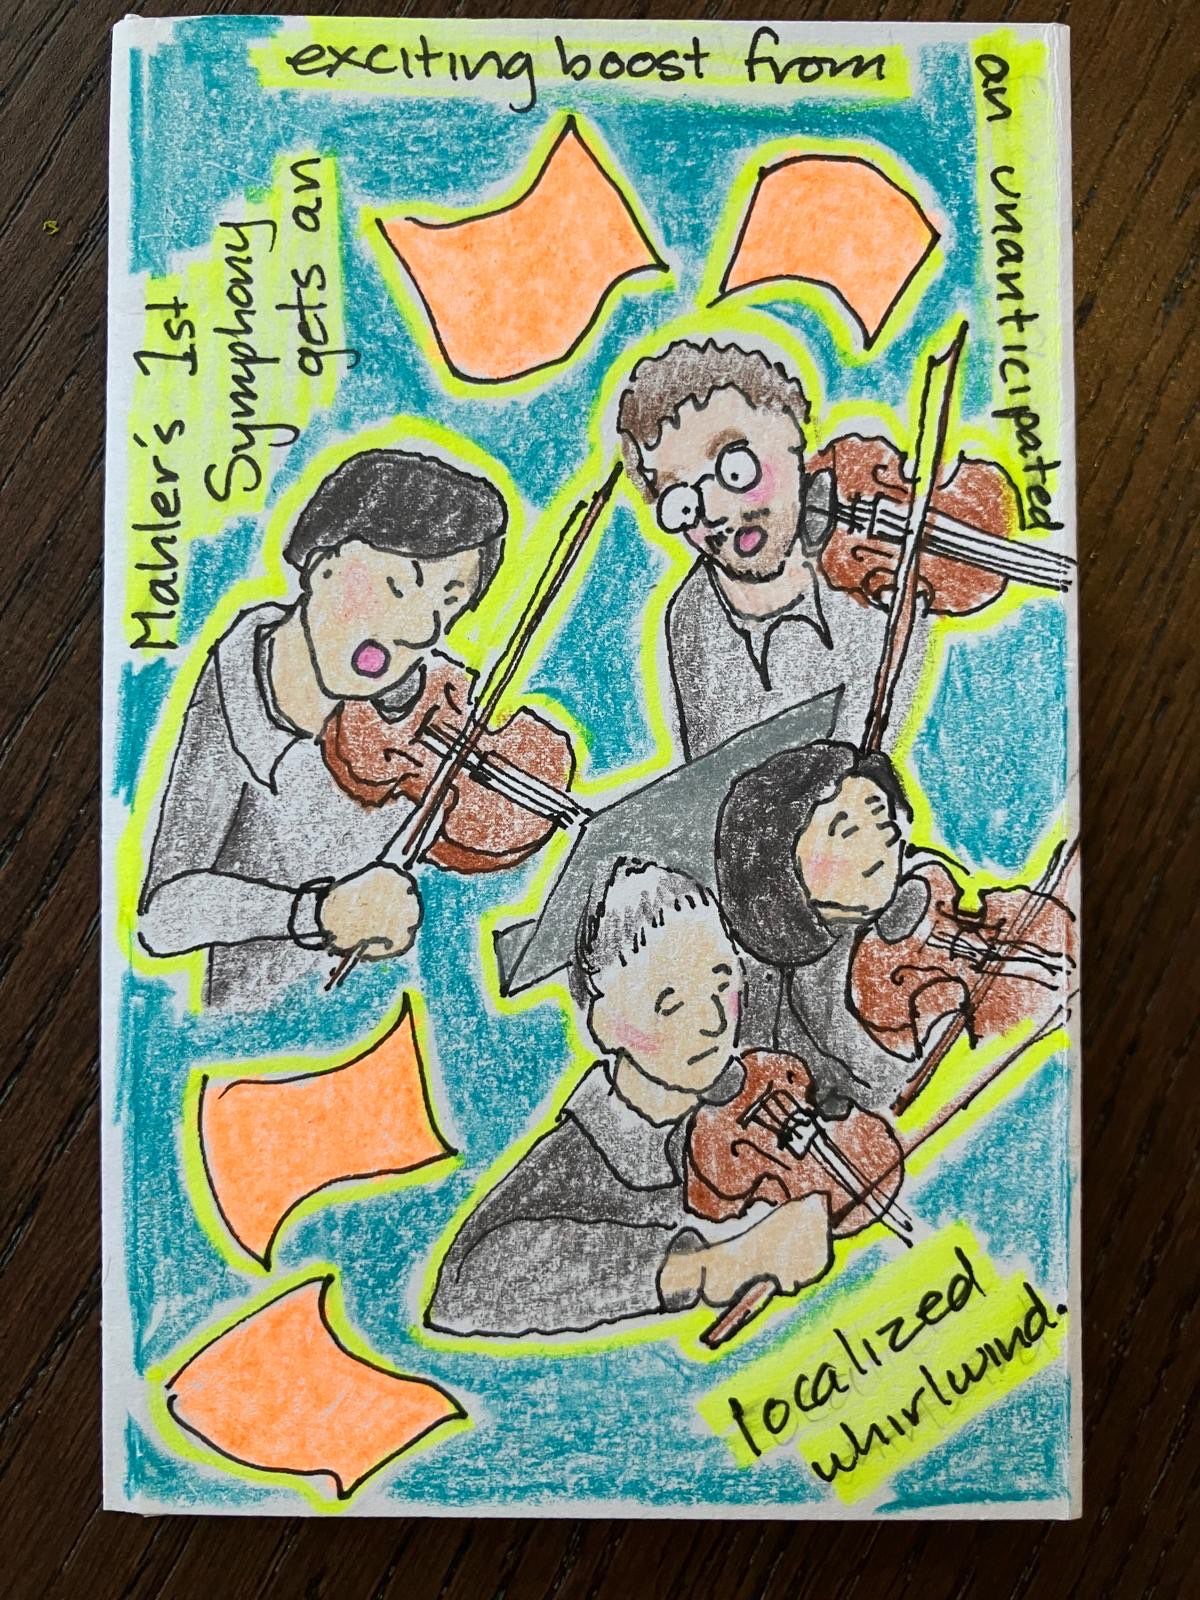 Mahler's 1st
Symphony
gets an
exciting boost from
an unanticipated
localized
whirlwind.